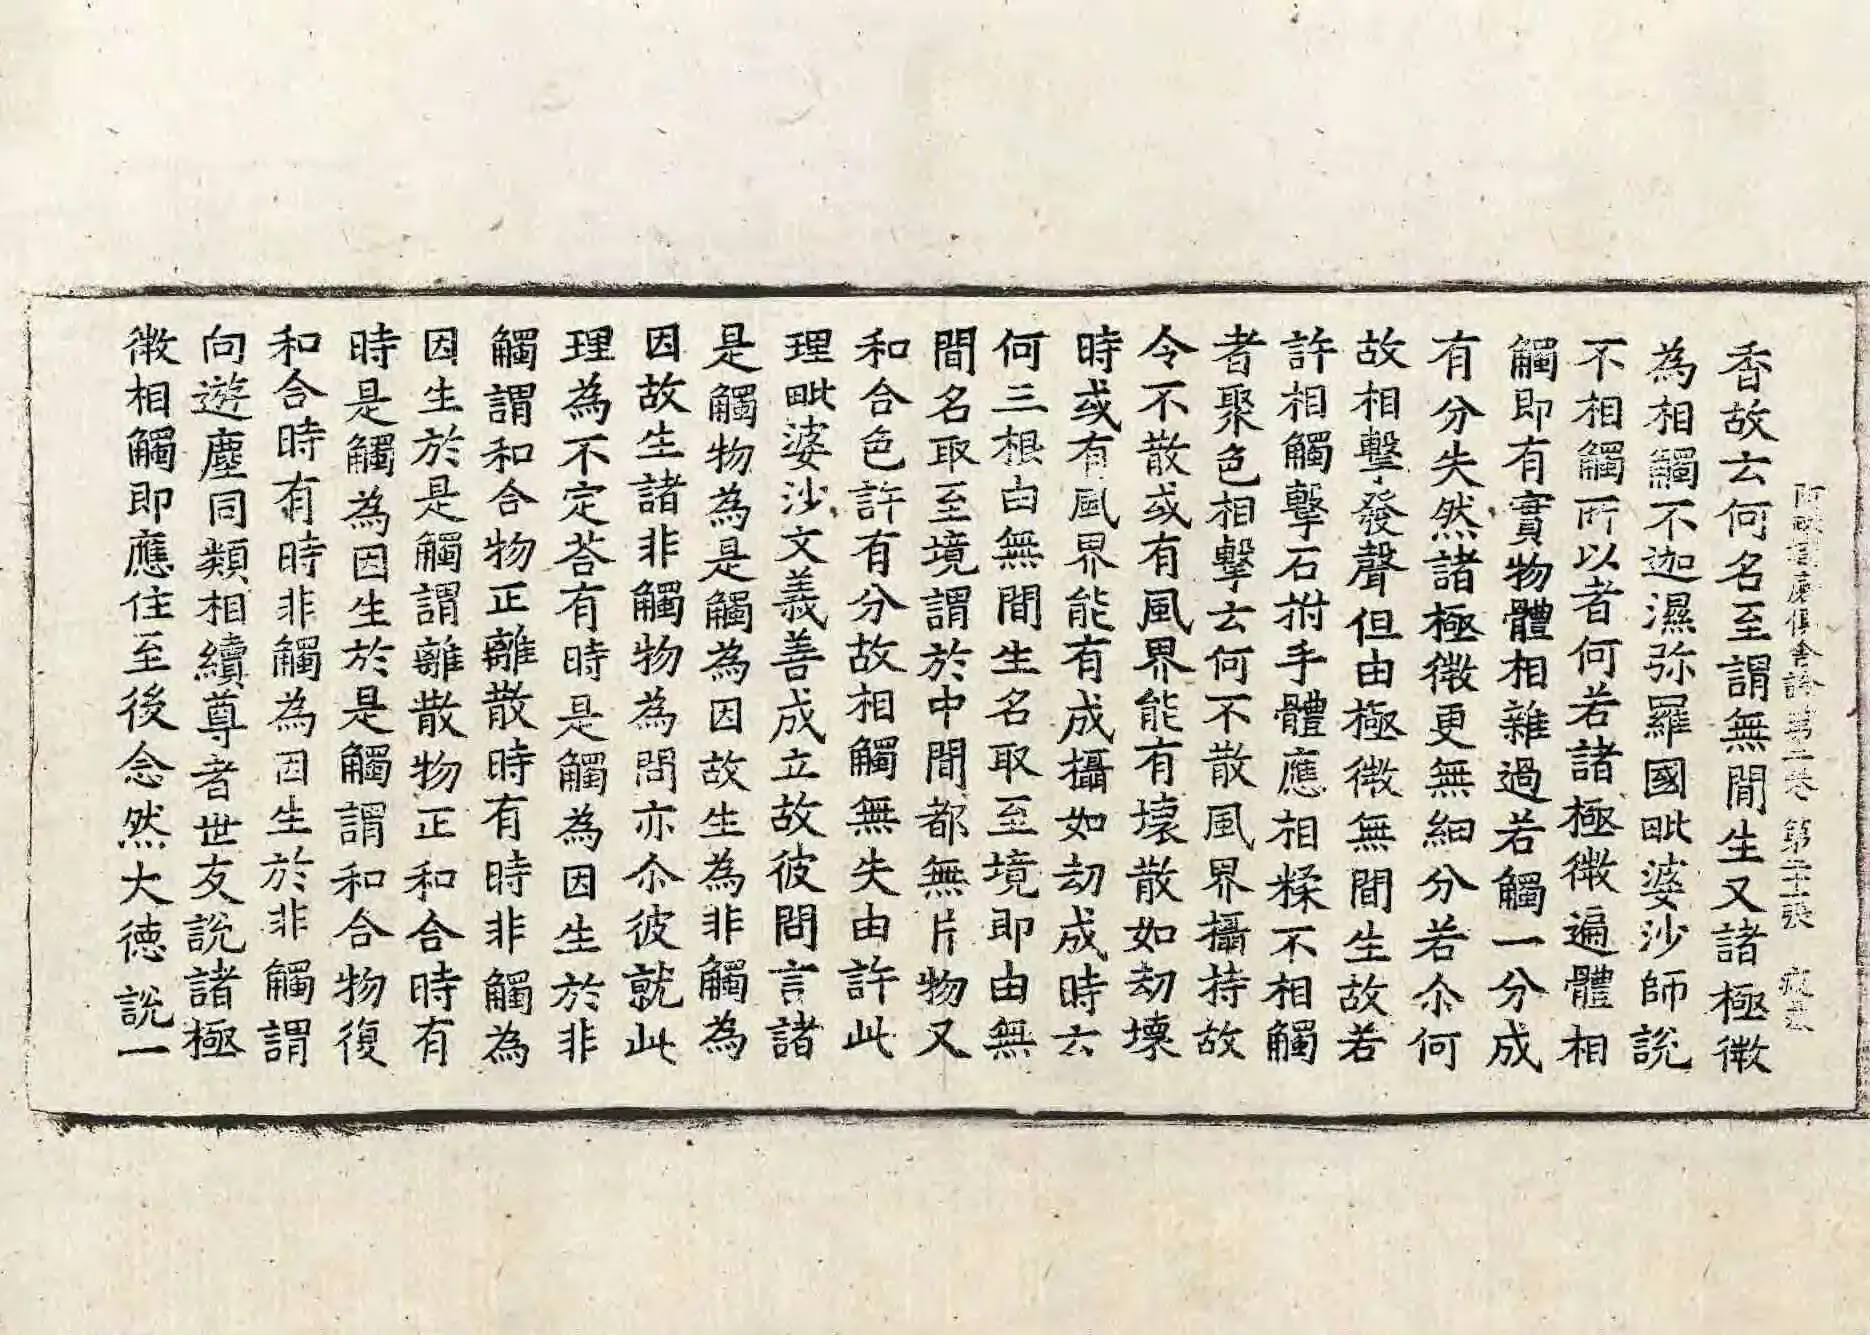 阿毗達磨俱舍論第二卷 第 張
香故云何名至謂無間生又諸極微
為相觸不迦濕弥羅國毗婆沙師說
不相觸所以者何若諸極微遍體相
觸即有實物體相雜過若觸一分成
有分失然諸極微更無細分若尒何
故相擊發聲但由極微無間生故若
許相觸擊石拊手體應相糅不相觸
者聚色相擊云何不散風界攝持故
令不散或有風界能有壞散如劫壞
時或有風界能有成攝如劫成時云
何三根由無間生名取至境即由無
間名取至境謂於中間都無片物又
和合色許有分故相觸無失由許此
理毗婆沙文義善成立故彼問言諸
是觸物為是觸為因故生為非觸為
因故生諸非觸物為問亦尒彼就此
理為不定荅有時是觸為因生於非
觸謂和合物正離散時有時非觸為
因生於是觸謂離散物正和合時有
時是觸為因生於是觸謂和合物復
和合時有時非觸為因生於非觸謂
向遊塵同類相續尊者世友說諸極
微相觸即應住至後念然大德說一